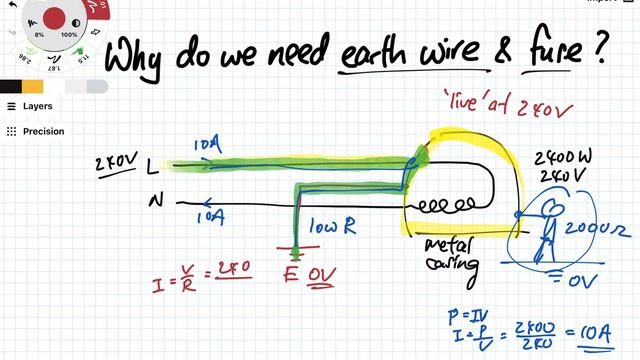 Import
8%
100%
2.86
1.87
11.5
Why do we need earth wire & fuse?
Layers
Precision
'live' at 240V
10A
240V L
N
10A
low R
E 0V
I = V/R = 240
metal
casing
2400W
240V
2000Ω
0V
P = IV
I = P/V = 2400/240 = 10A